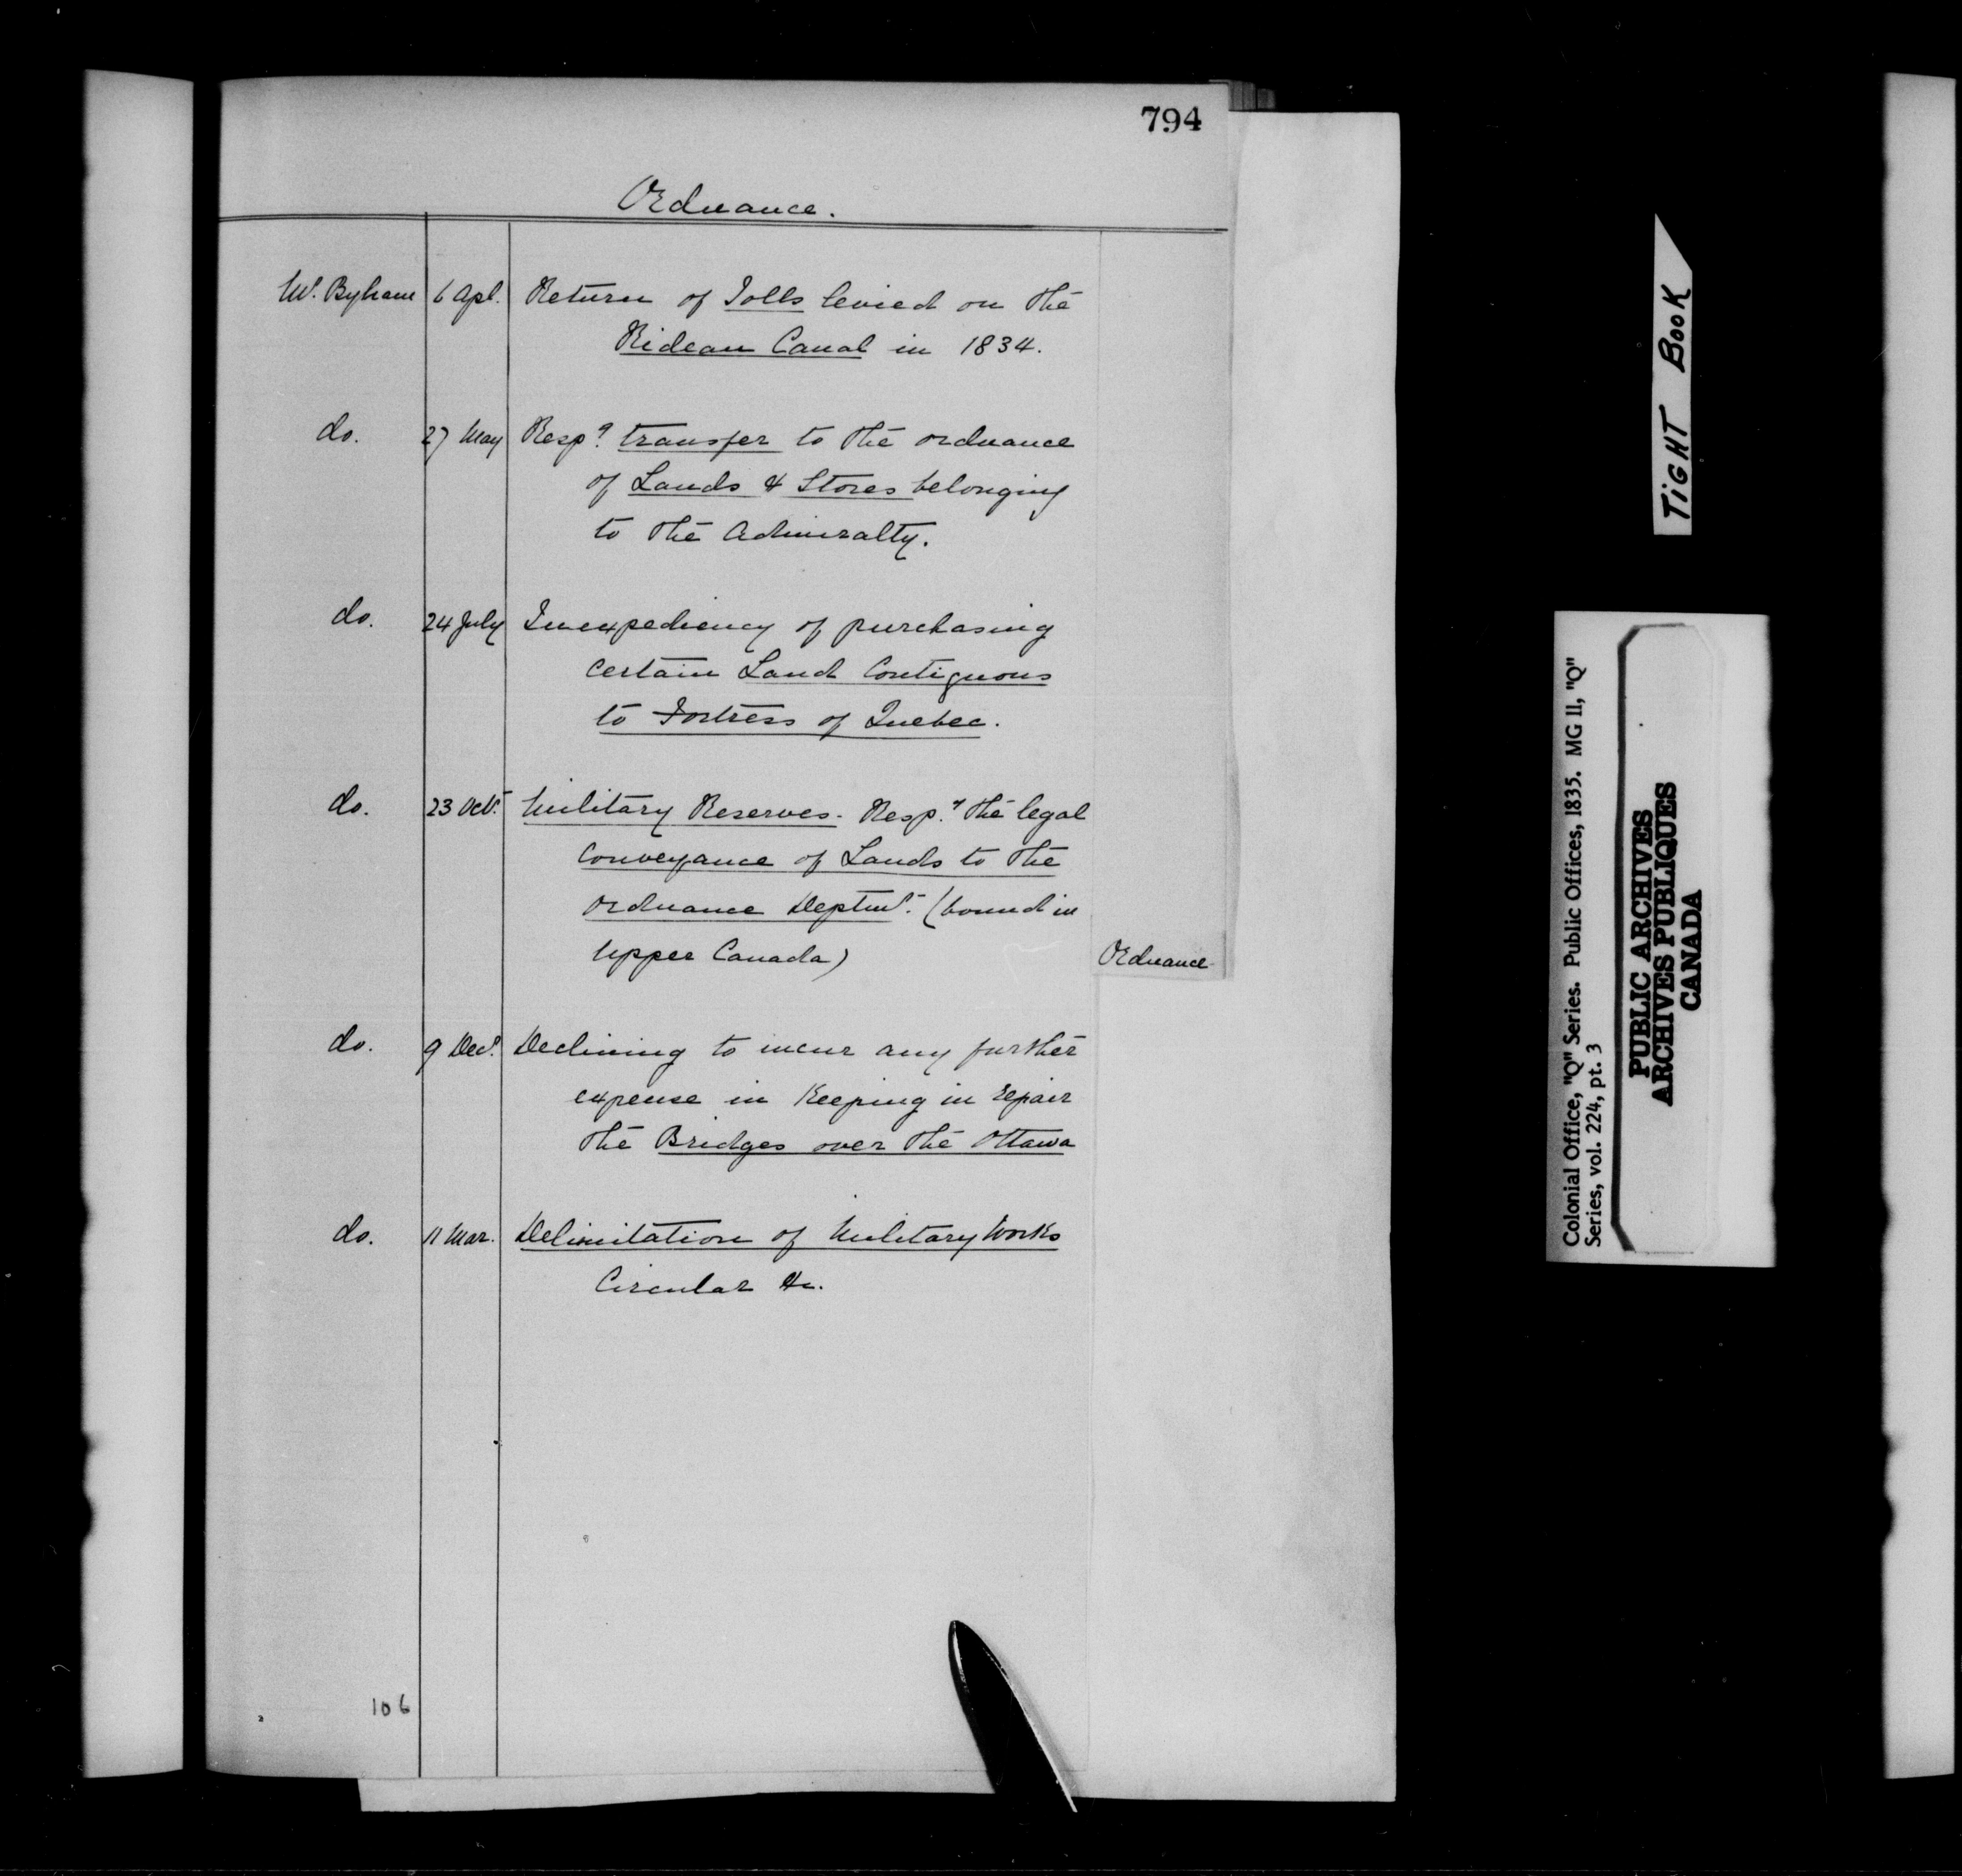 794
Ordnance.
W. Byham 6 Apl. Return of Tolls levied on the
Rideau Canal in 1834.
do. 27 May Respg transfer to the Ordnance
of Lands & Stores belonging
to the Admiralty.
do. 24 July Inexpediency of purchasing
Certain Land Contiguous
to Fortress of Quebec.
do. 23 Oct. Military Reserves. Respg the legal
Conveyance of Lands to the
Ordnance Deptmt. (bound in
Upper Canada) Ordnance
do. 9 Decr. Declining to incur any further
expense in Keeping in repair
the Bridges over the Ottawa
do. 11 Mar. Delimitation of Military Works
Circular &c.
106
TIGHT BOOK
Colonial Office, "Q" Series. Public Offices, 1835. MG 11, "Q"
Series, vol. 224, pt. 3
PUBLIC ARCHIVES
ARCHIVES PUBLIQUES
CANADA